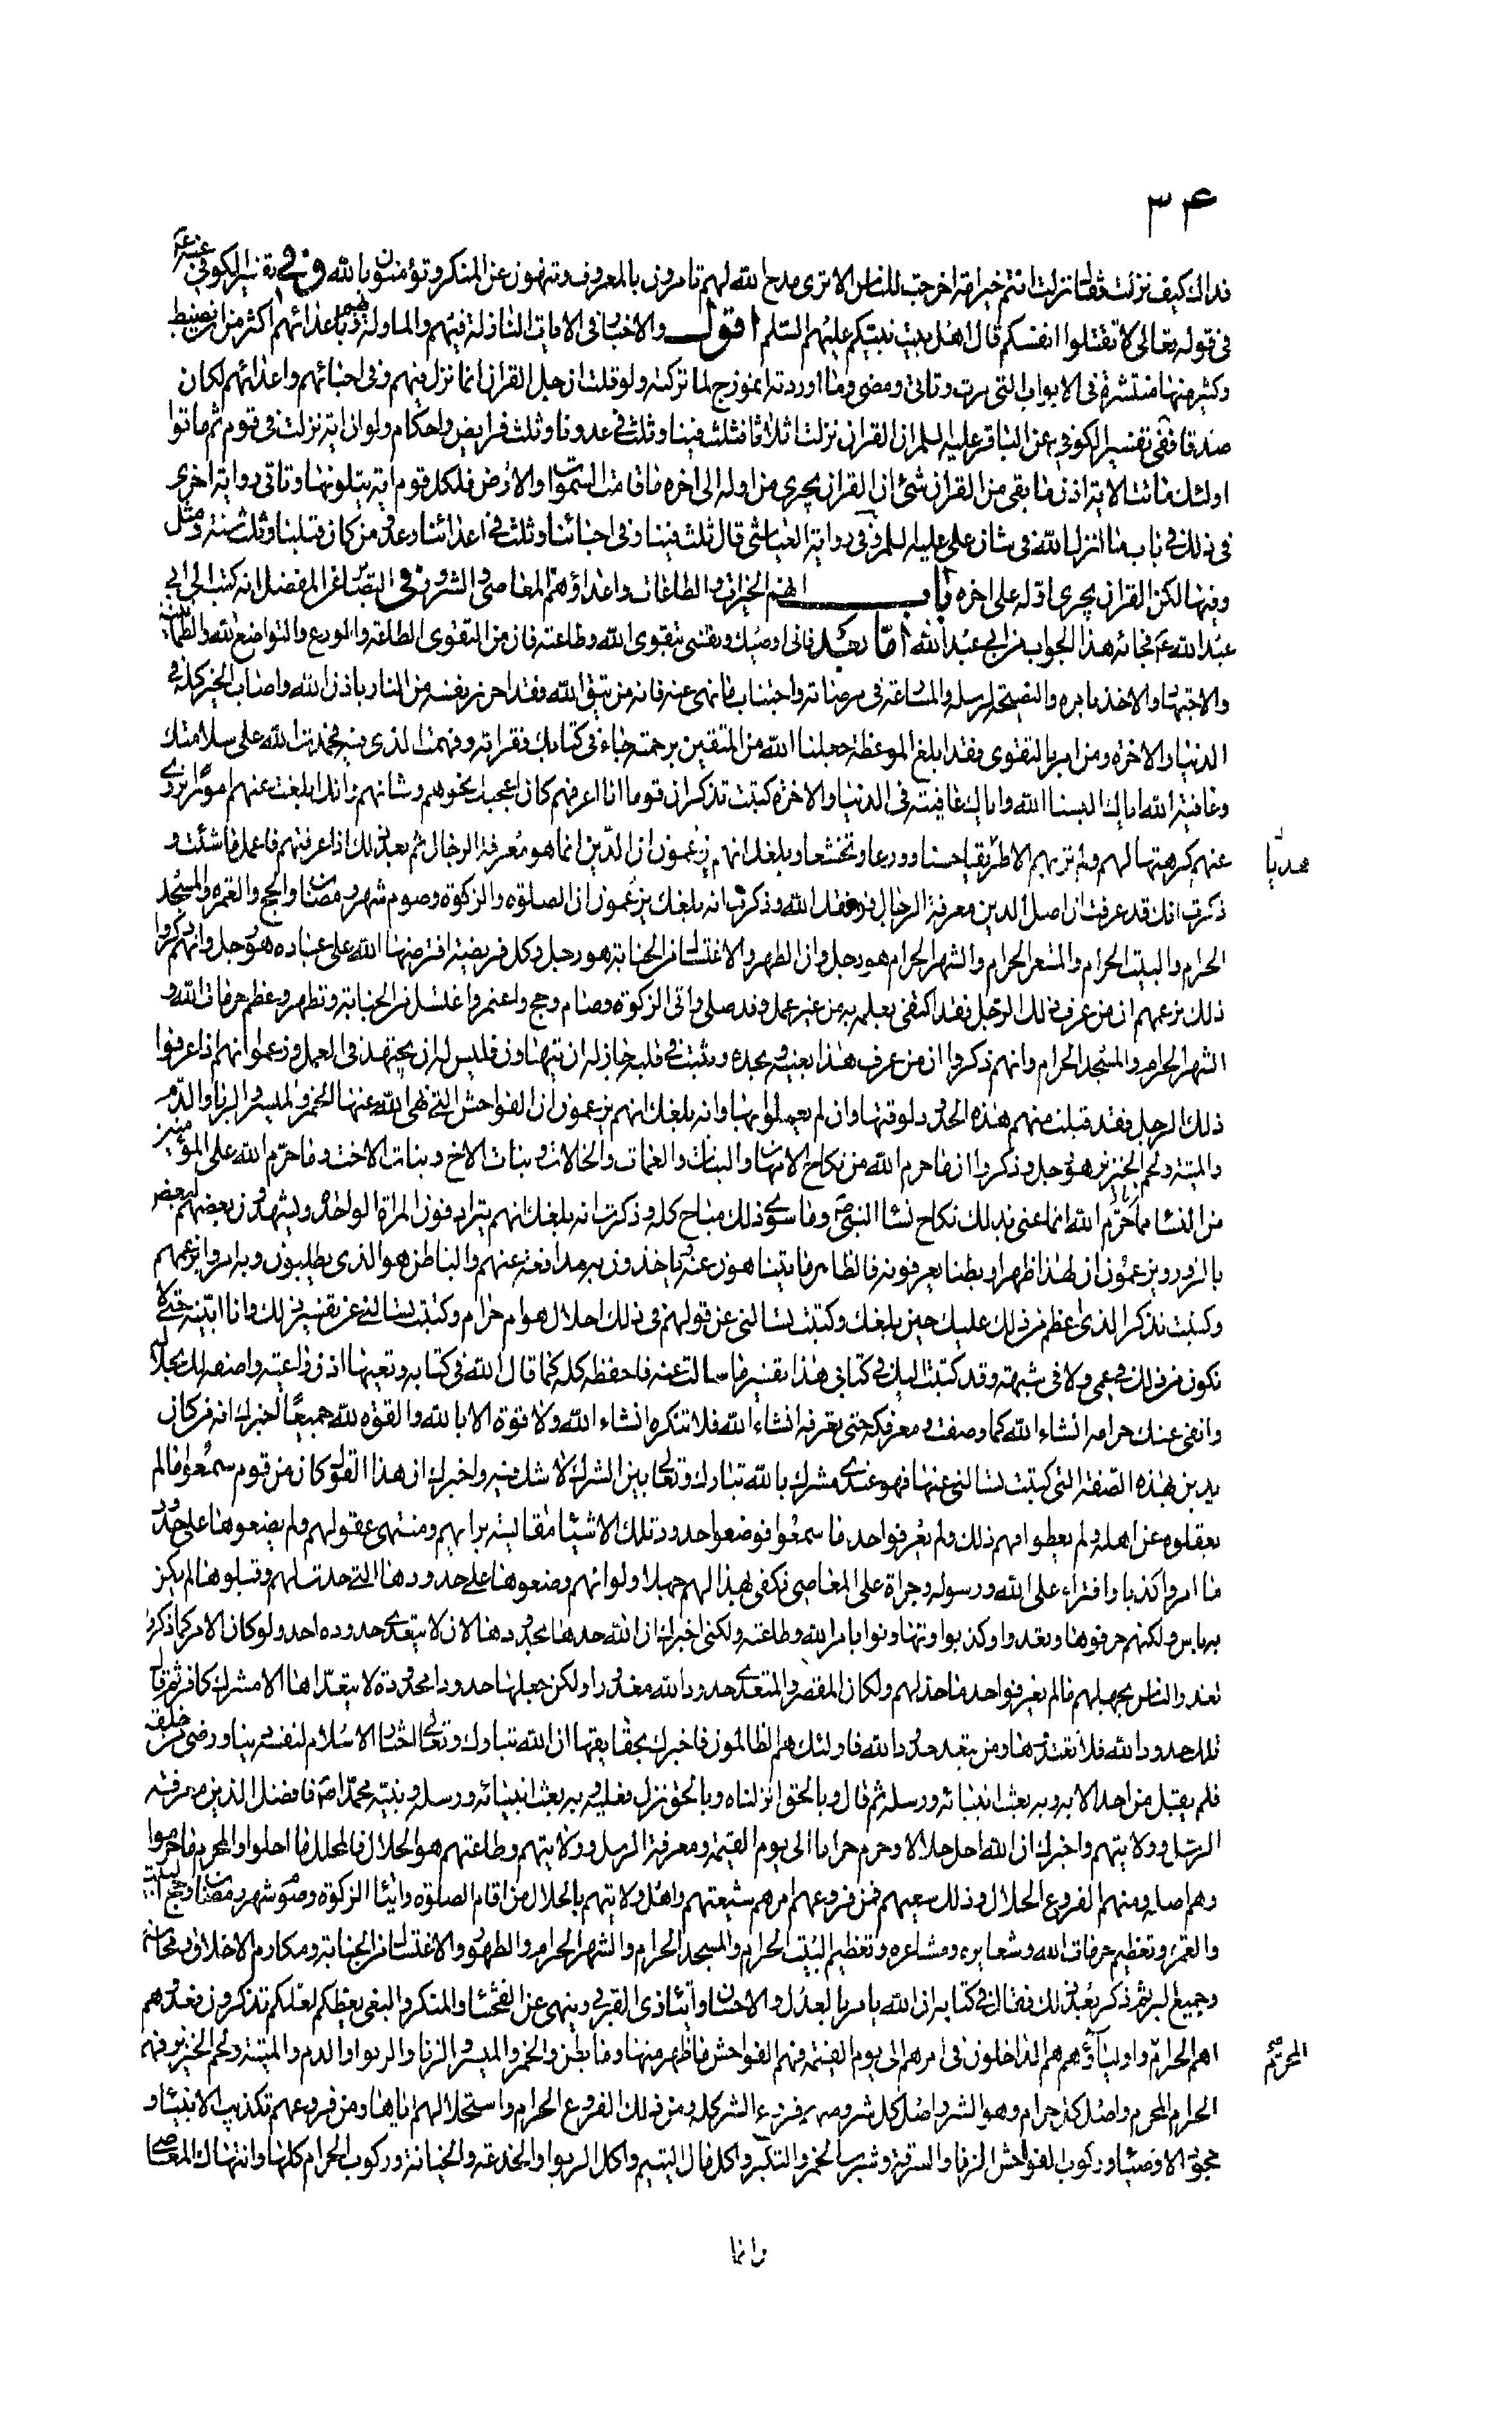 ۳۴
فداك كيف نزلت فقال نزلت انتم خير امة اخرجت للناس الا ترى مدح الله لهم تامرون بالمعروف وتنهون عن المنكر وتؤمنون بالله وفي تفسير الكوفي عنه ع
في قوله تعالى لا تقتلوا انفسكم قال اهل بيت نبيكم عليهم السلم اقول والاخبار في الايات النازلة فيهم والماولة بهم وباعدائهم اكثر من ان تضبط
وكثير منها منتشرة في الابواب التي مرت وتاتي ومضى وما اوردته انموذج لما تركته ولو قلت ان جل القران انما نزل فيهم وفي احبائهم واعدائهم لكان
صدقا ففي تفسير الكوفي عن الباقر عليه السلم ان القران نزلت اثلاثا فثلث فينا وثلث في عدونا وثلث فرايض واحكام ولو ان اية نزلت في قوم ثم ماتوا
اولئك ماتت الاية اذن ما بقي من القران شئ ان القران يجري من اوله الى اخره ما قامت السموات والارض فلكل قوم اية يتلونها وتاتي رواية اخرى
في ذلك في باب ما انزل الله في شان علي عليه السلم وفي رواية العياشي قال ثلث فينا وفي احبائنا وثلث في اعدائنا وعدو من كان قبلنا وثلث سنة ومثل
وفيها لكن القران يجري اوله على اخره باب انهم الخيرات والطاعات واعداؤهم المعاصي والشرور في البصائر عن المفضل انه كتب الى ابي
عبد الله ع فجائه هذا الجواب من ابي عبد الله اما بعد فاني اوصيك ونفسي بتقوى الله وطاعته فان من التقوى الطاعة والورع والتواضع لله والطمانينة
والاجتهاد والاخذ بامره والنصيحة لرسله والمسارعة في مرضاته واجتناب ما نهى عنه فانه من يتق الله فقد احرز نفسه من النار باذن الله واصاب الخير كله في
الدنيا والاخرة ومن امر بالتقوى فقد ابلغ الموعظة جعلنا الله من المتقين برحمته جاءني كتابك فقراته وفهمت الذي فيه فحمدت الله على سلامتك
وعافية الله اياك البسنا الله واياك عافيته في الدنيا والاخرة كتبت تذكر ان قوما انا اعرفهم كان اعجبك نحوهم وشانهم وانك ابلغت عنهم امورا تروى
عنهم كرهتها لهم ولم تر بهم الا طريقا حسنا وورعا وتخشعا وبلغك انهم يزعمون ان الدين انما هو معرفة الرجال ثم بعد ذلك اذا عرفتهم فاعمل ما شئت و
هديا
ذكرت انك قد عرفت ان اصل الدين معرفة الرجال فوفقك الله وذكرت انه بلغك يزعمون ان الصلوة والزكوة وصوم شهر رمضان والحج والعمرة والمسجد
الحرام والبيت الحرام والمشعر الحرام والشهر الحرام هو رجل وان الطهر والاغتسال من الجنابة هو رجل وكل فريضة افترضها الله على عباده هو رجل وانهم ذكروا
ذلك بزعمهم ان من عرف ذلك الرجل فقد اكتفى بعلمه به من غير عمل وقد صلى واتى الزكوة وصام وحج واعتمر واغتسل من الجنابة وتطهر وعظم حرمات الله و
الشهر الحرام والمسجد الحرام وانهم ذكروا ان من عرف هذا بعينه وبحده وثبت في قلبه جاز له ان يتهاون فليس له ان يجتهد في العمل وزعموا انهم اذا عرفوا
ذلك الرجل فقد قبلت منهم هذه الحدود لوقتها وان لم يعملوا بها وانه بلغك انهم يزعمون ان الفواحش التي نهى الله عنها الخمر والميسر والربا والدم
والميتة ولحم الخنزير هو رجل وذكروا ان ما حرم الله من نكاح الامهات والبنات والعمات والخالات وبنات الاخ وبنات الاخت وما حرم الله على المؤمنين
من النساء مما حرم الله انما عنى بذلك نكاح نساء النبي ص وما سوى ذلك مباح كله وذكرت انه بلغك انهم يترادفون المراة الواحدة ويشهدون بعضهم لبعض
بالزور ويزعمون ان لهذا ظهرا وبطنا يعرفونه فالظاهر ما يتناهون عنه ياخذون به مدافعة عنهم والباطن هو الذي يطلبون وبه امروا بزعمهم
وكتبت تذكر الذي عظم من ذلك عليك حين بلغك وكتبت تسالني عن قولهم في ذلك احلال هو ام حرام وكتبت تسالني عن تفسير ذلك وانا ابينه حتى لا
تكون من ذلك في عمى ولا في شبهة وقد كتبت اليك في كتابي هذا تفسير ما سالت عنه فاحفظه كله كما قال الله في كتابه وتعيها اذن واعية واصفه لك بحلاله
وانفي عنك حرامه انشاء الله كما وصفت ومعرفكه حتى تعرفه انشاء الله فلا تنكره انشاء الله ولا قوة الا بالله والقوة لله جميعا اخبرك انه من كان
يدين بهذه الصفة التي كتبت تسالني عنها فهو عندي مشرك بالله تبارك وتعالى بين الشرك لا شك فيه واخبرك ان هذا القول كان من قوم سمعوا ما لم
يعقلوه عن اهله ولم يعطوا فهم ذلك ولم يعرفوا حد ما سمعوا فوضعوا حدود تلك الاشياء مقايسة برايهم ومنتهى عقولهم ولم يضعوها على حدود
ما امروا كذبا وافتراء على الله ورسوله وجراة على المعاصي فكفى بهذا لهم جهلا ولو انهم وضعوها على حدودها التي حدت لهم وقبلوها لم يكن
به باس ولكنهم حرفوها وتعدوا وكذبوا وتهاونوا بامر الله وطاعته ولكني اخبرك ان الله حدها بحدودها لان لا يتعدى حدوده احد ولو كان الامر كما ذكروا
لعذر الناس بجهلهم ما لم يعرفوا حد ما حد لهم ولكان المقصر والمتعدي حدود الله معذورا ولكن جعلها حدودا محدودة لا يتعداها الا مشرك كافر ثم قال
تلك حدود الله فلا تعتدوها ومن يتعد حدود الله فاولئك هم الظالمون فاخبرك بحقايقها ان الله تبارك وتعالى اختار الاسلام لنفسه دينا ورضى من خلقه
فلم يقبل من احد الا به وبه بعث انبيائه ورسله ثم قال وبالحق انزلناه وبالحق نزل فعليه وبه بعث انبيائه ورسله ونبيه محمدا ص فافضل الدين معرفة
الرسل وولايتهم واخبرك ان الله احل حلالا وحرم حراما الى يوم القيمة ومعرفة الرسل وولايتهم وطاعتهم هو الحلال فالمحلل ما احلوا والمحرم ما حرموا
وهم اصله ومنهم الفروع الحلال وذلك سعيهم فمن فروعهم امرهم شيعتهم واهل ولايتهم بالحلال من اقام الصلوة وايتاء الزكوة وصوم شهر رمضان وحج البيت
والعمرة وتعظيم حرمات الله وشعايره ومشاعره وتعظيم البيت الحرام والمسجد الحرام والشهر الحرام والطهور والاغتسال من الجنابة ومكارم الاخلاق ومحاسنها
وجميع البر ثم ذكر بعد ذلك فقال في كتابه ان الله يامر بالعدل والاحسان وايتاء ذي القربى وينهى عن الفحشاء والمنكر والبغي يعظكم لعلكم تذكرون فعدوهم
هم الحرام واولياؤهم هم الداخلون في امرهم الى يوم القيمة فهم الفواحش ما ظهر منها وما بطن والخمر والميسر والزنا والربوا والدم والميتة ولحم الخنزير فهم
المحرم
الحرام المحرم واصل كل حرام وهو الشر واصل كل شر ومنهم فروع الشر كله ومن ذلك الفروع الحرام واستحلالهم اياها ومن فروعهم تكذيب الانبياء و
جحود الاوصياء وركوب الفواحش الزنا والسرقة وشرب الخمر والتكبر واكل مال اليتيم واكل الربوا والخدعة والخيانة وركوب الحرام كلها وانتهاك المعاصي
وانما